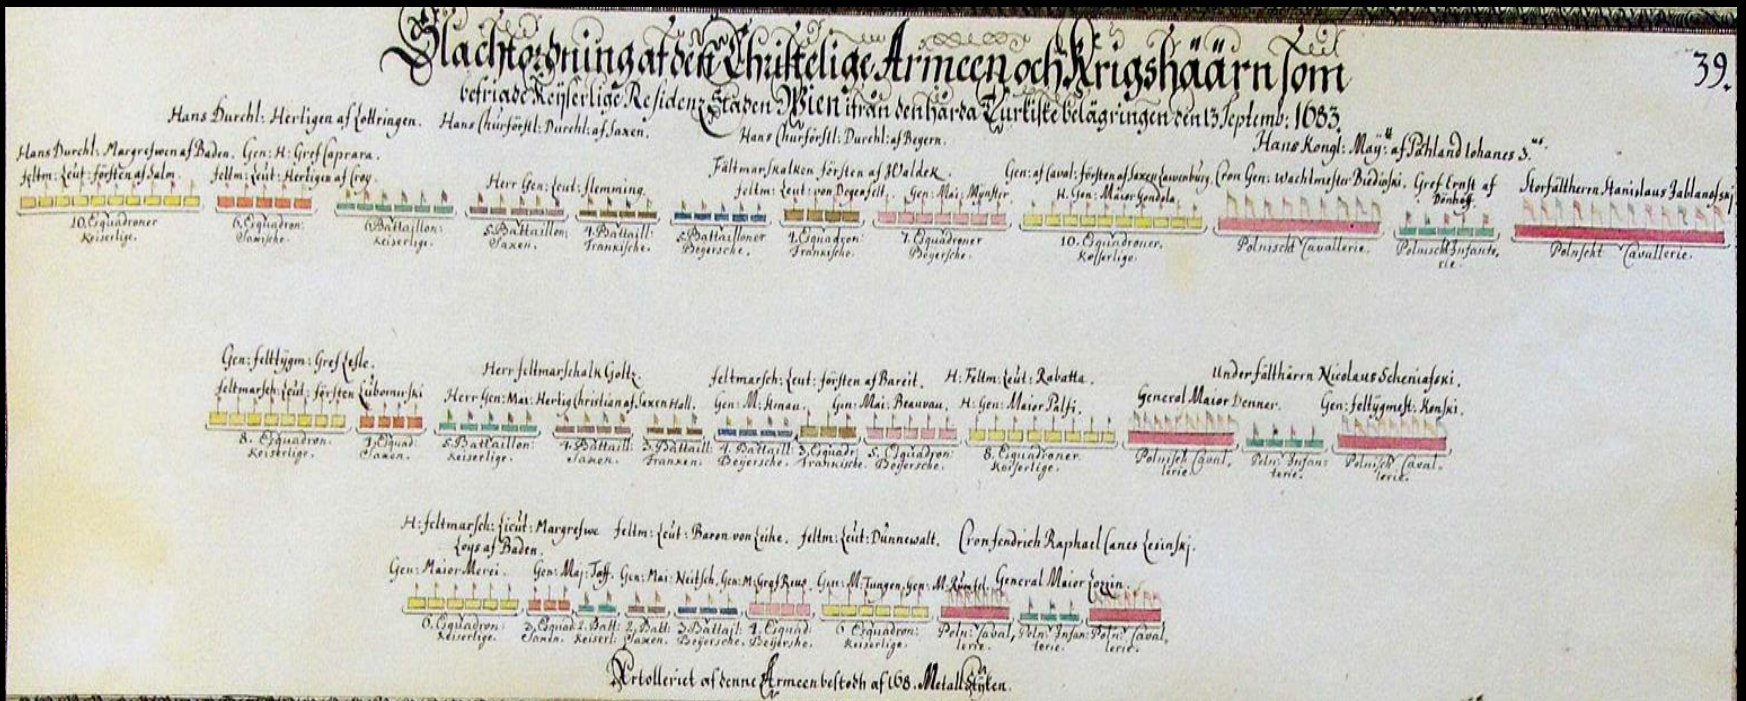 Slachtordning af den Christelige Armeen och Krigshäärn som
39.
befriade Keyserlige Residenz Staden Wien ifrån den hårda Türkiske belägringen den 13 Septemb: 1683.
Hans Durchl: Hertigen af Lottringen. Hans Churförstl: Durchl: af Saxen. Hans Churförstl: Durchl: af Beyern. Hans Kongl: Maÿ:tt af Påhland Iohanes 3.us
Hans Durchl: Margrefwen af Baden. Gen: H: Gref Caprara.
Feltm: Leut: försten af Salm. Feltm: Leut: Hertigen af Croy. Herr Gen: Leut: Flemming. Fältmarskalken försten af Waldek. Gen: af Caval: försten af Saxen Lawenburg. Cron Gen: Wachtmester Gref Ernst af Dönhoff. Storfältherrn Stanislaus Jablanofskj
Feltm: Leut: von Degenfelt. Gen: Mai: Münster H. Gen: Maior Gondola
10. Esquadroner Keiserlige. 6. Esquadron: Saxische. 6. Battaillon: Keiserlige. 5. Battaillon: Saxen. 4. Battaill: Frankische. 5. Battailloner Beyersche. 4. Esquadron: Frankische. 7. Esquadroner Beyersche. 10. Esquadroner. Keiserlige. Polnischt Cavallerie. Polnischt Infanterie. Polnischt Cavallerie.
Gen: Felttygm: Gref Lesle. Herr Feltmarschalk Goltz. Feltmarsch: Leut: försten af Bareit. H: Feltm: Leut: Rabatta. Underfälthärrn Nicolaus Scheniafski.
Feltmarsch: Leut: försten Lubomirski Herr Gen: Mai: Hertig Christian af Saxen Hall. Gen: M: Gen: Mai: Beauvau. H: Gen: Maior Palfi. General Maior Denner. Gen: Feltygmest: Konski.
8. Esquadron: Keiserlige. 4. Esquad: Saxen. 5. Battaillon: Keiserlige. 4. Battaill: Saxen. 3. Battaill: Franken. 4. Battaill: Beyersche. 3. Esquadr: Frankische. 5. Esquadron: Beyersche. 8. Esquadroner Keiserlige. Polnisch Cavallerie. Poln: Infanterie. Polnisch Cavallerie.
H: Feltmarsch: Lieut: Margrefwe Loys af Baden. Feltm: Leut: Baron von Leihe. Feltm: Leut: Dünnewalt. Cronfendrich Raphael Canes Lesinskj.
Gen: Maior Merci. Gen: Maj: Taff. Gen: Mai: Neitsch. Gen: M: Gref Reus. Gen: M. Tungen. Gen: M. Rumpel General Maior Lozzin.
6. Esquadron: Keiserlige. 3. Esquad: Saxen. 2. Batt: Keiserl: 2. Batt: Saxen. 3. Battajl: Beyersche. 4. Esquad: Beyershe. 6 Esquadron: Keiserlige. Poln: Cavallerie. Poln: Infanterie. Poln: Cavallerie.
Artolleriet af denne Armeen bestodh af 168. Metall Stÿken.